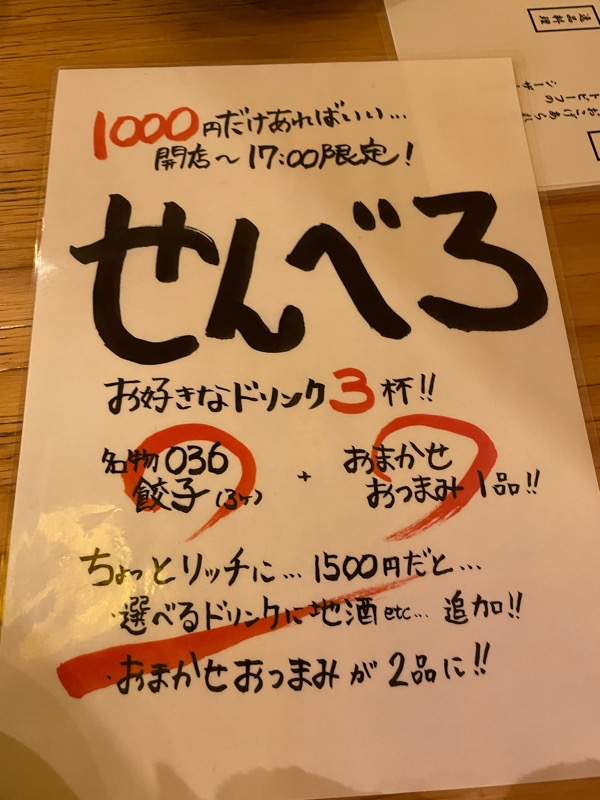 1000円だけあればいい…
開店～17:00限定!
せんべろ
お好きなドリンク3杯!!
名物036
餃子(3ヶ)
+
おまかせ
おつまみ1品!!
ちょっとリッチに…1500円だと…
・選べるドリンクに地酒etc…追加!!
・おまかせおつまみが2品に!!
逸品料理